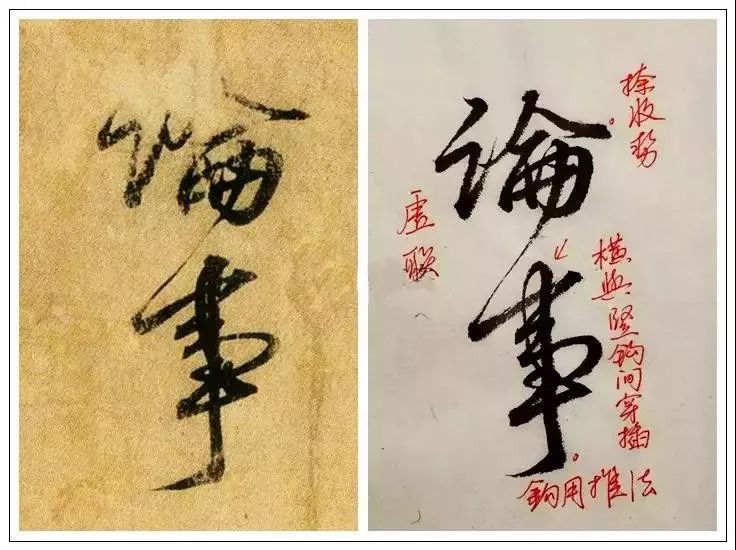 論事
論事
捺收势
虚联
横与竖钩间穿插
钩用推法